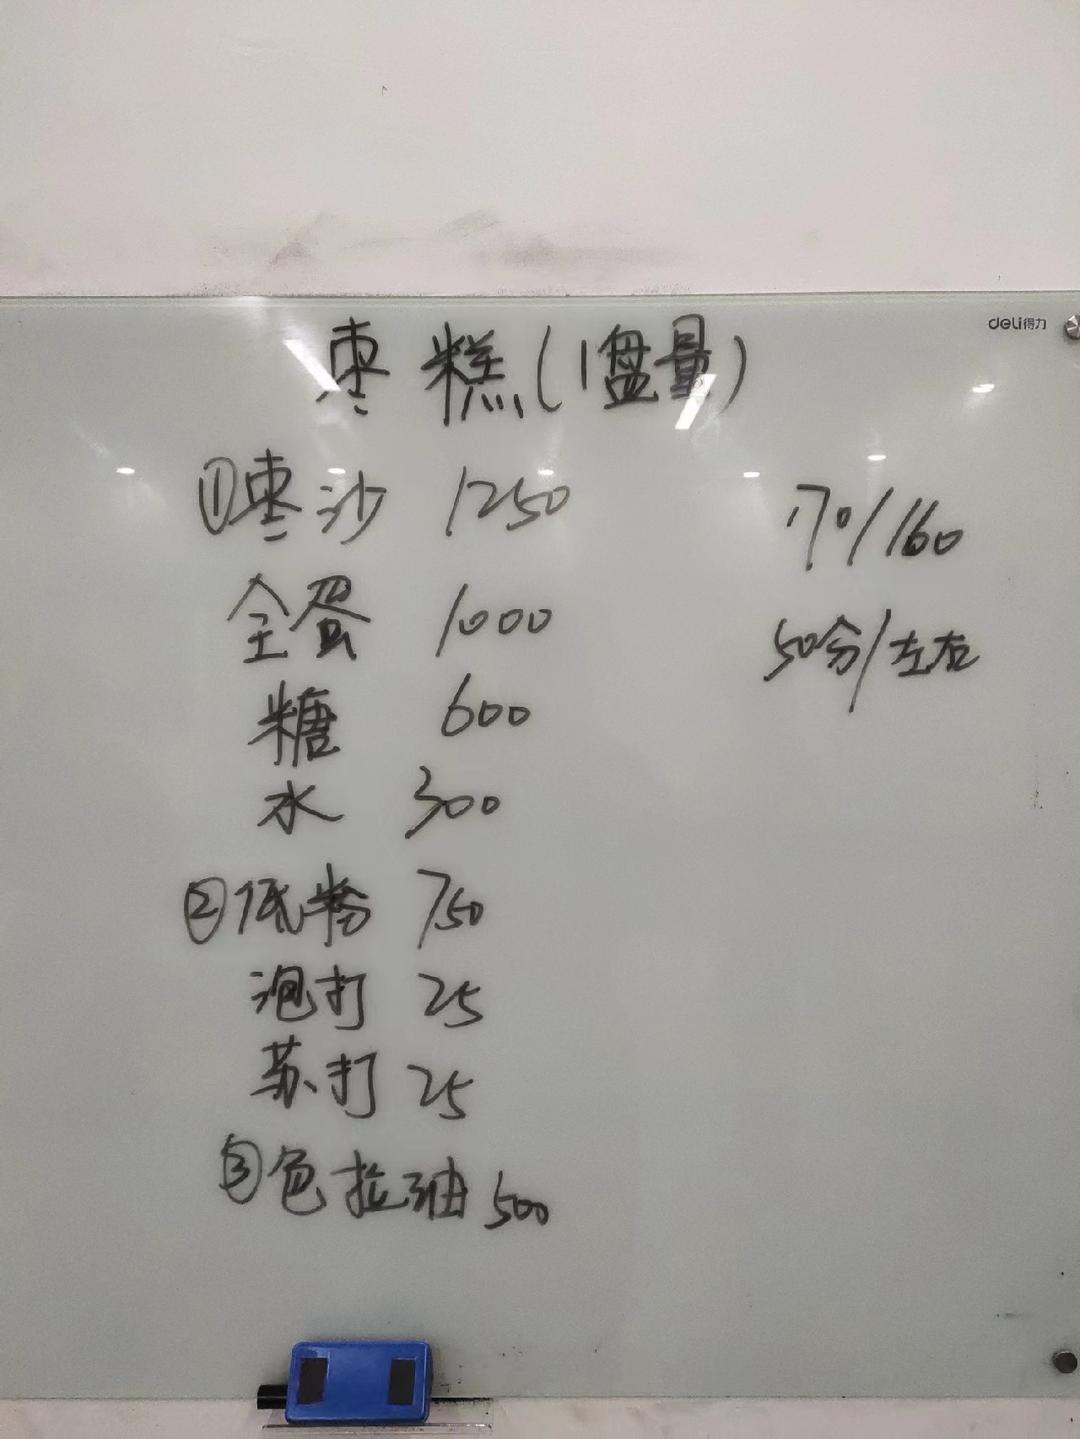 deli得力
枣糕(1盘量)
①枣沙 1250
全蛋 1000
糖 600
水 300
②低粉 750
泡打 25
苏打 25
③色拉油 500
170/160
50分/左右